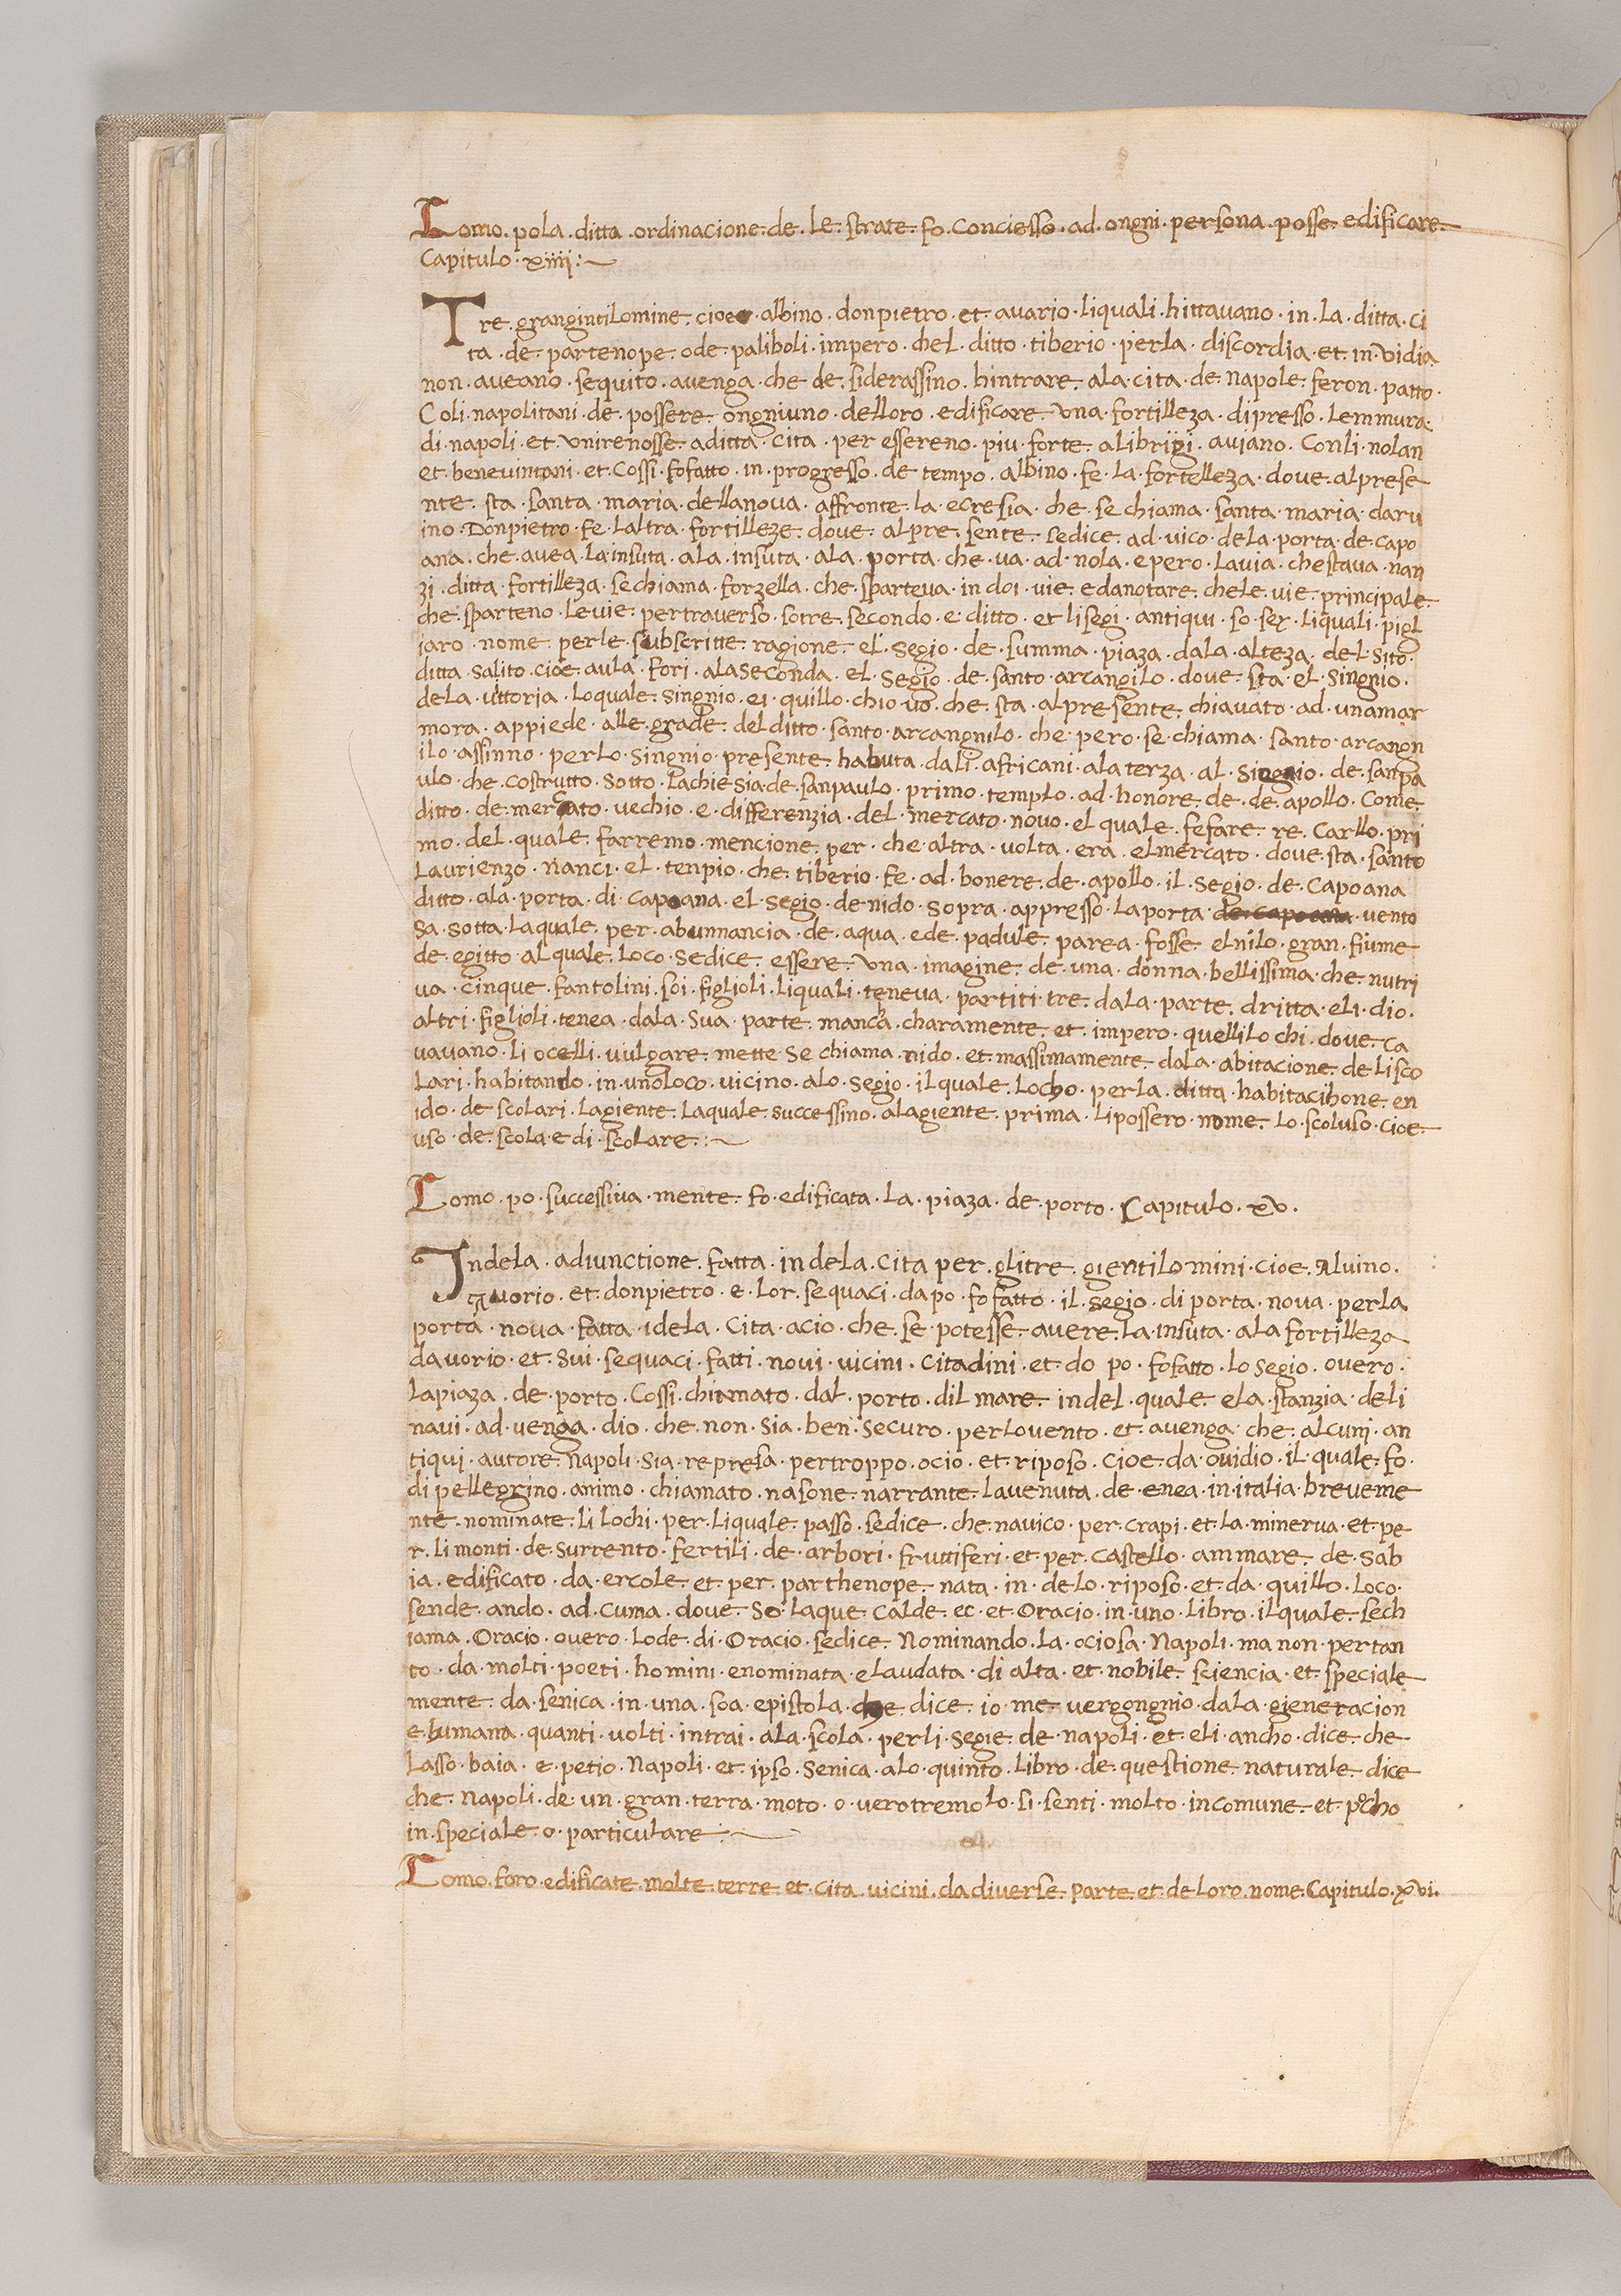 Como · pola · ditta · ordinacione · de · le · strate · fo · conciesso · ad · ongni · persona · posse · edificare
Capitulo · xiiij :
Tre · grangintilomine · cioe · albino · donpietro · et · avario · liquali · hittavano · in · la · ditta · ci
ta · de · partenope · ode · paliboli · impero · chel · ditto · tiberio · perla · discordia · et · in vidia
non · aveano · sequito · avenga · che · de · siderassino · hintrare · ala · cita · de · napole · feron · patto ·
Coli · napolitani · de · possere · ongniuno · delloro · edificare · una · fortilleza · dipresso · lemmura ·
di · napoli · et · unirenosse · aditta · cita · per essereno · piu · forte · alibrigi · aviano · Conli · nolan
et · benevintani · et · Cossi · fofatto · in · progresso · de · tempo · albino · fe · la · fortelleza · dove · alprese
nte · sta · santa · maria · dellanova · affronte · la · ecresia · che · se chiama · santa · maria · daru
ino · Donpietro · fe · laltra · fortilleze · dove · alpre · sente · sedice · ad · vico · dela · porta · de · capo
ana · che · avea · la insuta · ala · insuta · ala · porta · che · va · ad · nola · epero · lavia · chestava · nan
zi · ditta · fortilleza · sechiama · forzella · che · sparteva · in doi · vie · edanotare · chele · vie · principale
che · sparteno · levie · pertraverso · sotre · secondo · e · ditto · et lisegi · antiqui · so · sex · liquali · pigl
iaro · nome · perle · subscritte · ragione · el · segio · de · summa · piaza · dala · alteza · del · sito ·
ditta · salito · cioe · aula · fori · alaseconda · el · segio · de · santo · arcangilo · dove · sta · el · singnio ·
dela · vittoria · loquale · singnio · ei · quillo · chiovo · che · sta · alpresente · chiavato · ad · unamar
mora · appiede · alle · grade · delditto · santo · arcangnilo · che · pero · se · chiama · santo · arcangn
ilo · assinno · perlo · singnio · presente · habuta · dali · africani · alaterza · al · singnio · de · sanpa
ulo · che · costrutto · sotto · lachiesia · de · sanpaulo · primo · templo · ad · honore · de · de · apollo · Come
ditto · de · mercato · vechio · e · differenzia · del · mercato · novo · el quale · fefare · re · Carllo · pri
mo · del · quale · farremo · mencione · per · che · altra · volta · era · elmercato · dove · sta · santo
laurienzo · nanci · el · tenpio · che · tiberio · fe · ad · honere · de · apollo · il · segio · de · Capoana
ditto · ala · porta · di · capoana · el · segio · de nido · sopra · appresso · laporta · de capoana · vento
sa · sotta · laquale · per · abunnancia · de · aqua · ede · padule · parea · fosse · elnilo · gran · fiume
de · egitto · alquale · loco · sedice · essere · una · imagine · de · una · donna · bellissima · che · nutri
va · cinque · fantolini · soi · figlioli · liquali · teneva · partiti · tre · dala · parte · dritta · eli · dio ·
altri · figlioli · tenea · dala · sua · parte · manca · charamente · et · impero · quellilochi · dove · ca
vavano · li ocelli · vulgare · mette · se chiama · nido · et · massimamente · dala · abitacione · de lisco
lari · habitando · in · unoloco · vicino · alo · segio · ilquale · locho · perla · ditta · habitacihone · en
ido · de · scolari · lagiente · laquale · successino · alagiente · prima · lipossero · nome · lo · scoluso · cioe
uso · de · scola · e di · scolare :
Como · po · successiva · mente · fo · edificata · la · piaza · de · porto · Capitulo · xv ·
Indela · adiunctione · fatta · indela · cita per · glitre · gientilomini · cioe · Aluino ·
avorio · et · donpietro · e · lor · sequaci · dapo · fofatto · il · segio · di porta · nova · perla
porta · nova · fatta · idela · cita · acio · che · se · potesse · avere · la · insuta · ala fortilleza
davorio · et · sui · sequaci · fatti · novi · vicini · citadini · et · do po · fofatto · lo segio · overo ·
lapiaza · de · porto · Cossi · chiamato · dal · porto · dil mare · indel · quale · ela · stanzia · deli
navi · ad · venga · dio · che · non · sia · ben · securo · perlovento · et · avenga · che · alcuni · an
tiqui · autore · napoli · sia · represa · pertroppo · ocio · et · riposo · cioe · da · ovidio · il quale · fo ·
di pellegrino · animo · chiamato · nasone · narrante · lavenuta · de · enea · in · italia · breveme
nte · nominate · li lochi · per · liquale · passo · sedice · che · navico · per · crapi · et · la · minerva · et · pe
r · li monti · de · surrento · fertili · de · arbori · fruttiferi · et · per · castello · ammare · de · sab
ia · edificato · da · ercole · et · per · parthenope · nata · in · delo · riposo · et · da · quillo · loco ·
sende · ando · ad · cuma · dove · so · laque · calde · ec · et · Oracio · in · uno · libro · ilquale · sech
iama · Oracio · overo · lode · di · Oracio · sedice · Nominando · la · ociosa · Napoli · ma non · pertan
to · da · molti · poeti · homini · enominata · elaudata · di · alta · et · nobile · sciencia · et · speciale
mente · da · senica · in · una · soa · epistola · che dice · io · me · vergongnio · dala · gieneracion
e · humana · quanti · volti · intrai · ala · scola · perli · segie · de · napoli · et · eli · ancho · dice · che
lasso · baia · e · petio · Napoli · et · ipso · senica · alo · quinto · libro · de · questione · naturale · dice
che · napoli · de · un · gran · terra · moto · o · verotremolo · si · senti · molto · incomune · et · pocho
in · speciale · o · particulare :
Como · foro · edificate · molte · terre · et · cita · vicini · da diverse · parte · et · de loro · nome · Capitulo · xvi ·